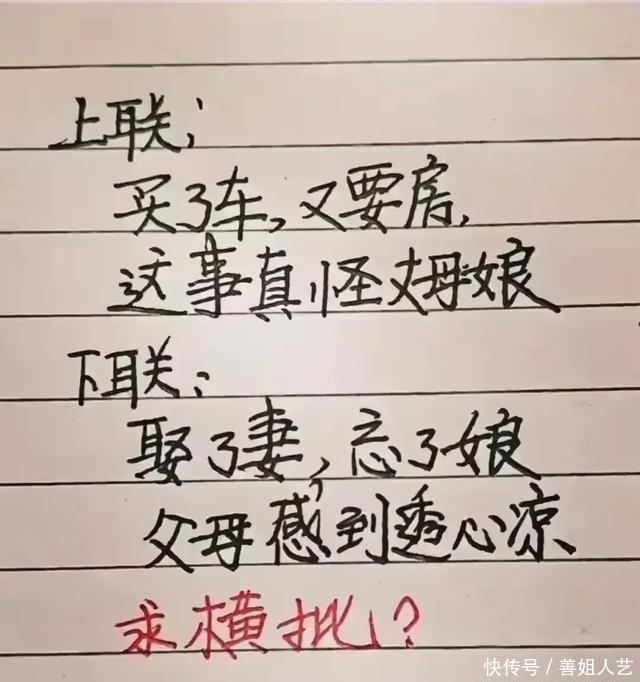 上联:
买了车,又要房,
这事真怪丈母娘
下联:
娶了妻,忘了娘
父母感到透心凉
求横批?
快传号/善姐人艺